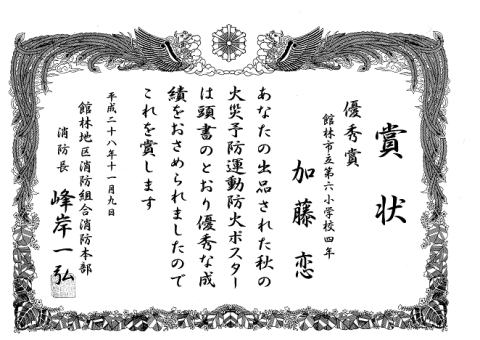 賞状
優秀賞
館林市立第六小学校四年
加藤恋
あなたの出品された秋の
火災予防運動防火ポスター
は頭書のとおり優秀な成
績をおさめられましたので
これを賞します
平成二十八年十一月九日
館林地区消防組合消防本部
消防長 峰岸一弘